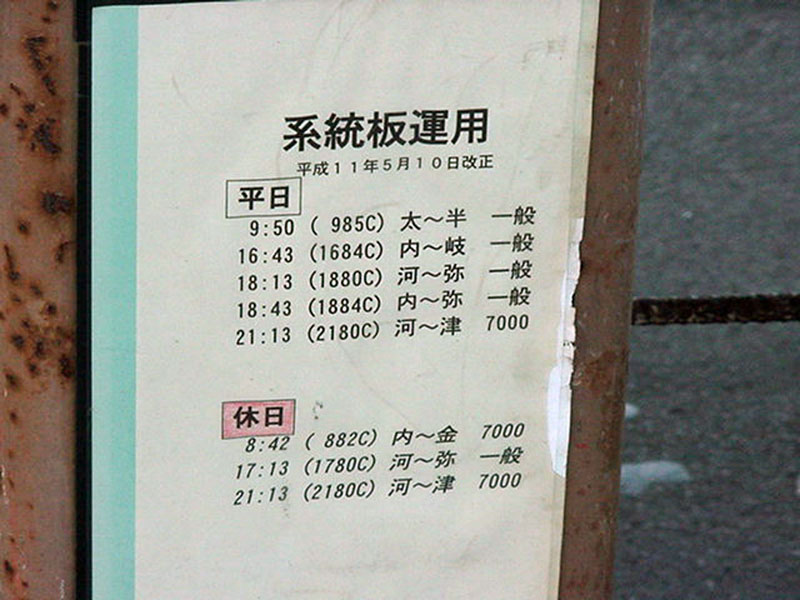 系統板運用
平成11年5月10日改正
平日
9:50 ( 985C) 太～半 一般
16:43 (1684C) 内～岐 一般
18:13 (1880C) 河～弥 一般
18:43 (1884C) 内～弥 一般
21:13 (2180C) 河～津 7000
休日
8:42 ( 882C) 内～金 7000
17:13 (1780C) 河～弥 一般
21:13 (2180C) 河～津 7000